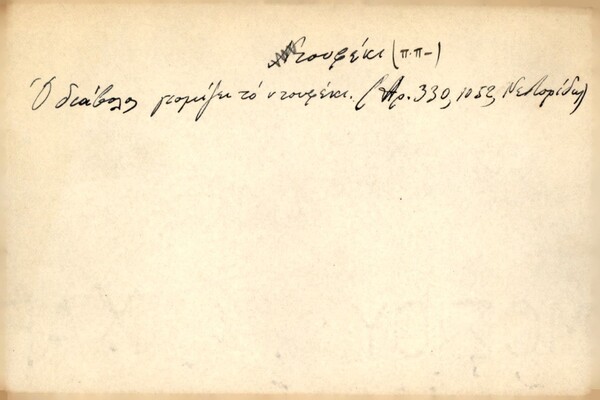 ντουφέκι (π.π-)
Ὁ διάβολος γιομίζει τό ντουφέκι. (Ἀρ. 330, 1052, Νεστορίδης)